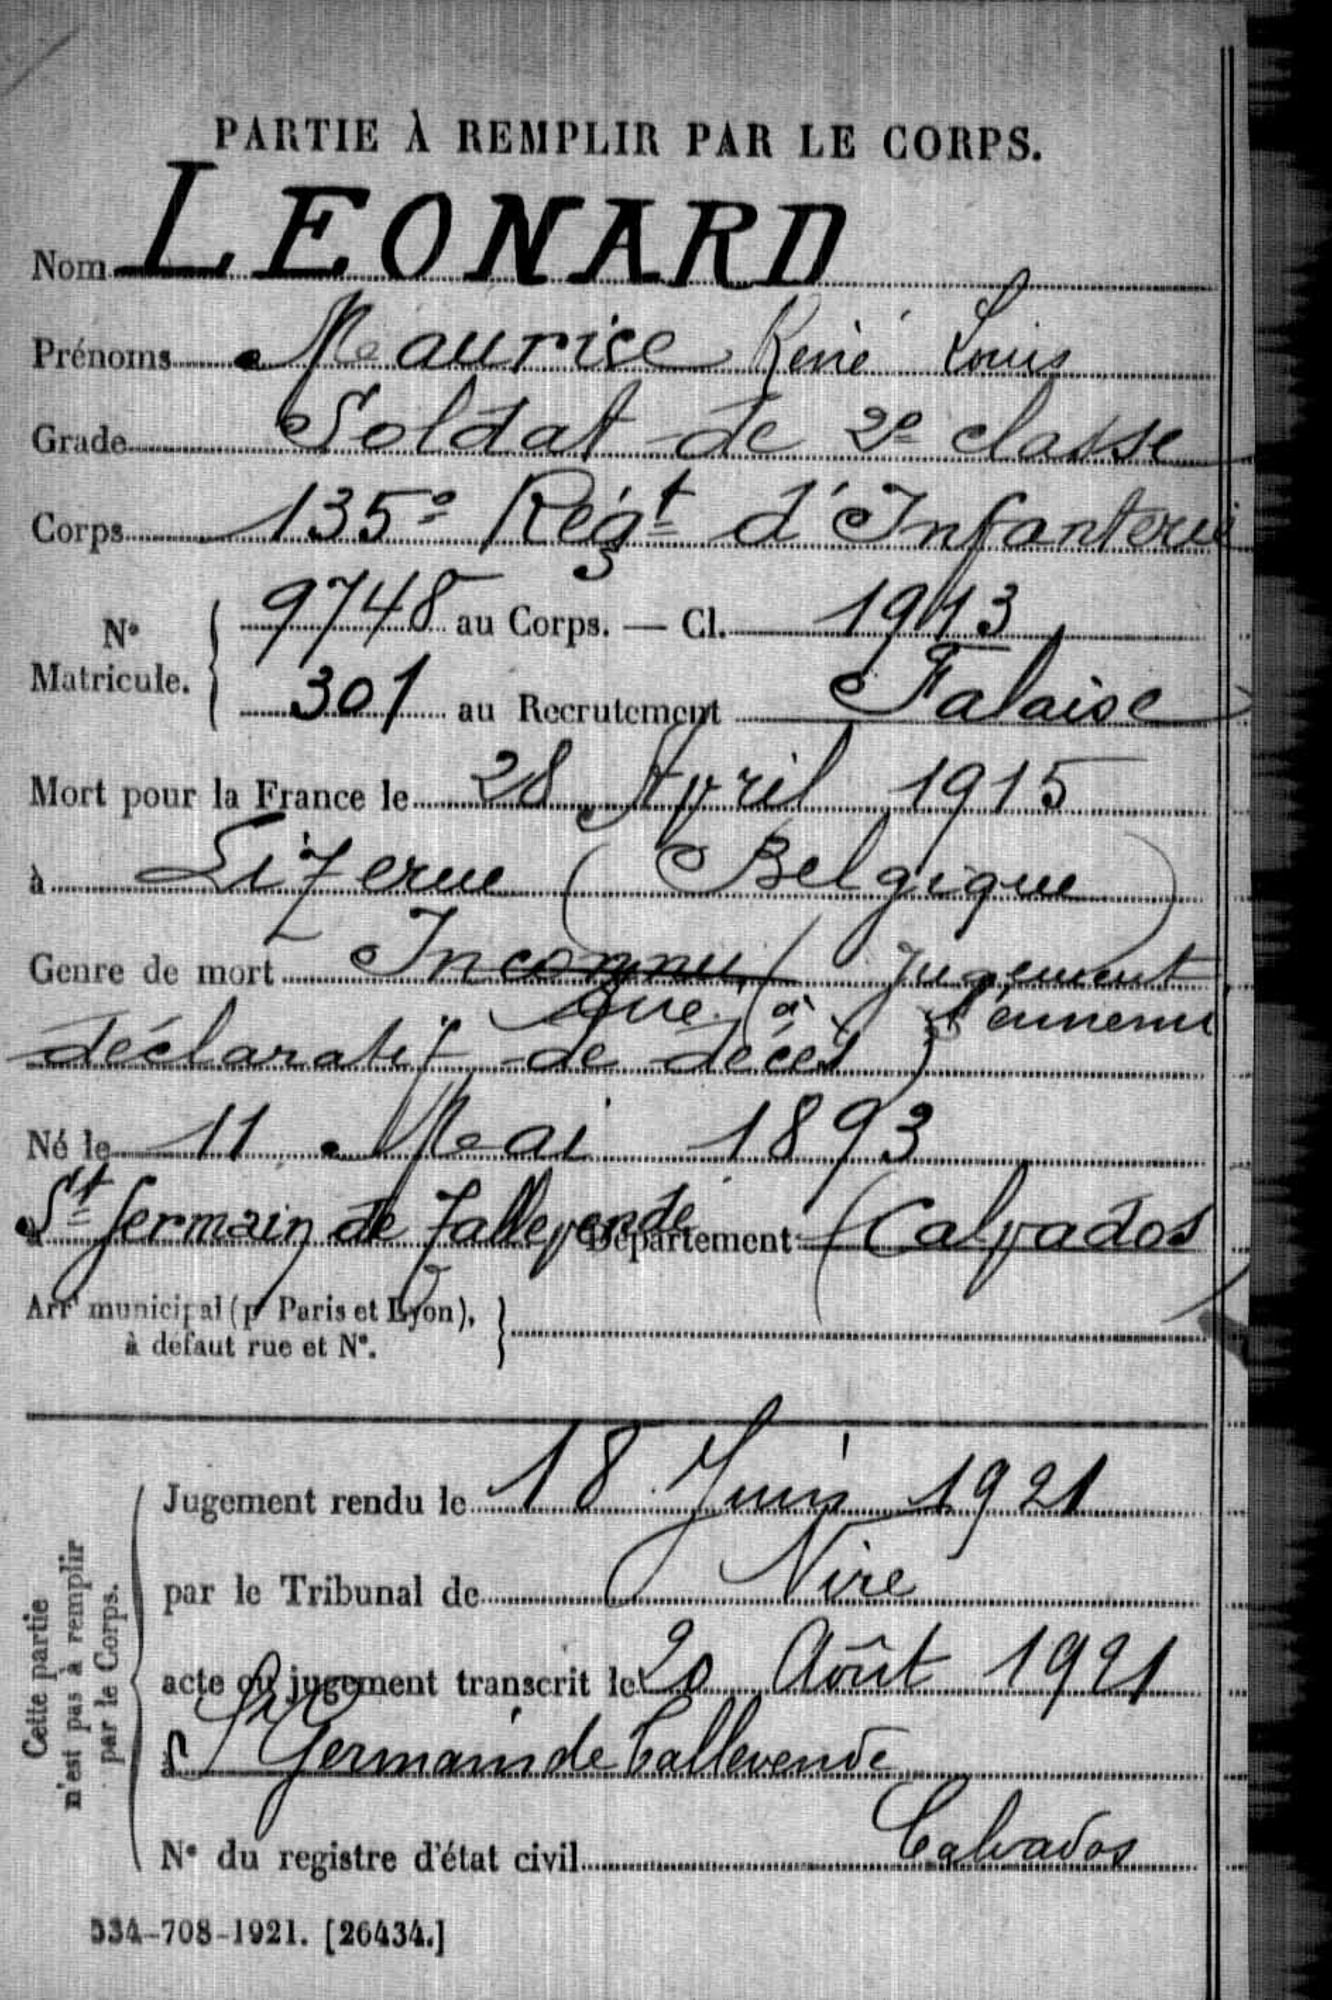 PARTIE À REMPLIR PAR LE CORPS.
Nom LEONARD
Prénoms Maurice René Louis
Grade Soldat de 2e classe
Corps 135e Régt d'Infanterie
No Matricule. { 9748 au Corps. — Cl. 1913
301 au Recrutement Falaise
Mort pour la France le 28 Avril 1915
à Lizerne (Belgique)
Genre de mort Inconnu (Jugement
Tué à l'ennemi
déclaratif de décès)
Né le 11 Mai 1893
à St Germain de Tallevende Département (Calvados)
Arrt municipal (pr Paris et Lyon), à défaut rue et No. }
Cette partie n'est pas à remplir par le Corps.
Jugement rendu le 18 Juin 1921
par le Tribunal de Vire
acte ou jugement transcrit le 20 Août 1921
à St Germain de Tallevende
No du registre d'état civil Calvados
534-708-1921. [26434.]